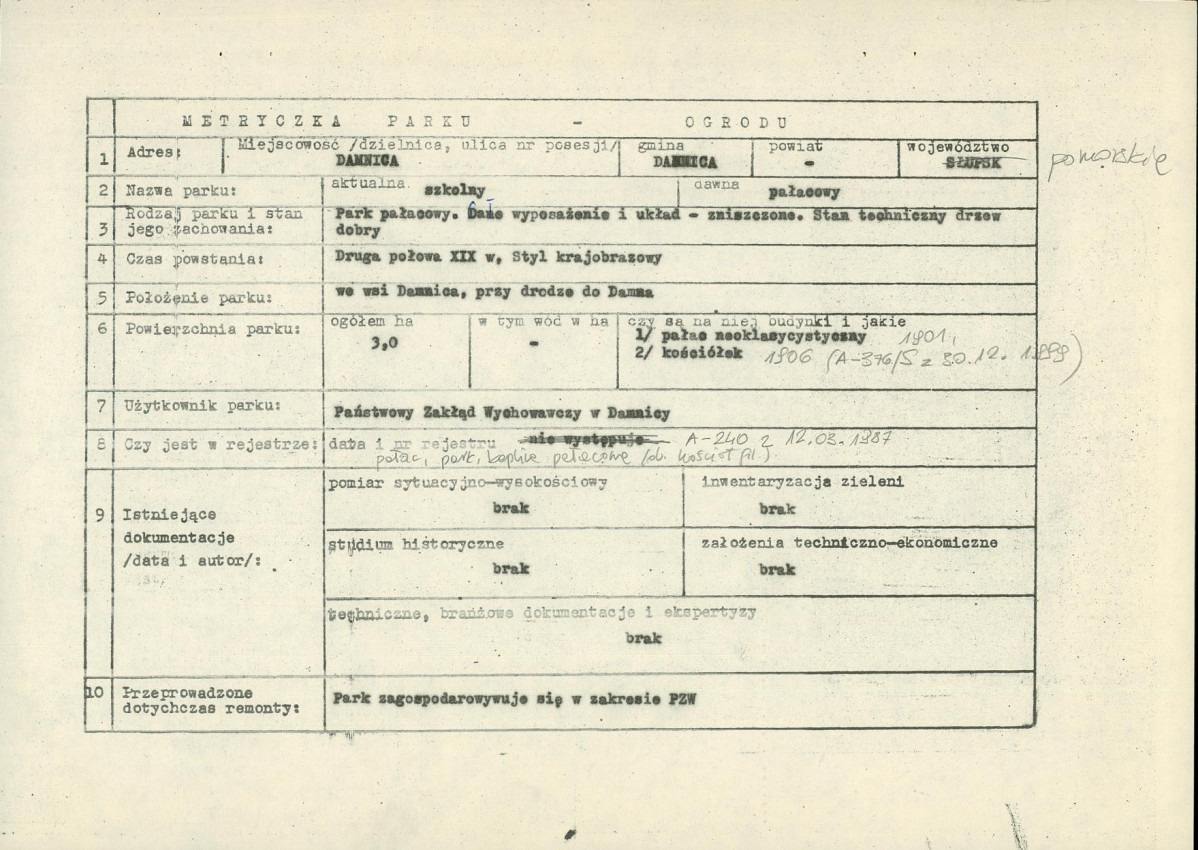 METRYCZKA PARKU - OGRODU
1 Adres: Miejscowość /dzielnica, ulica nr posesji/ gmina powiat województwo
DAMNICA DAMNICA - SŁUPSK pomorskie
2 Nazwa parku: aktualna szkolny dawna pałacowy
3 Rodzaj parku i stan Park pałacowy. wyposażenie i układ - zniszczone. Stan techniczny drzew
jego zachowania: dobry
4 Czas powstania: Druga połowa XIX w, Styl krajobrazowy
5 Położenie parku: we wsi Damnica, przy drodze do Damna
6 Powierzchnia parku: ogółem ha w tym wód w ha czy są na niej budynki i jakie
3,0 - 1/ pałac neoklasycystyczny 1901,
2/ kościółek 1906 (A-376/S z 30.12. 1999)
7 Użytkownik parku: Państwowy Zakłąd Wychowawczy w Damnicy
8 Czy jest w rejestrze: data i nr rejestru nie występuje A-240 z 12.03.1987
pałac, park, kaplica pałacowa (ob. kościół fil.)
9 Istniejące
dokumentacje
/data i autor/:
pomiar sytuacyjno-wysokościowy inwentaryzacja zieleni
brak brak
studium historyczne założenia techniczno-ekonomiczne
brak brak
techniczne, branżowe dokumentacje i ekspertyzy
brak
10 Przeprowadzone
dotychczas remonty: Park zagospodarowywuje się w zakresie PZW